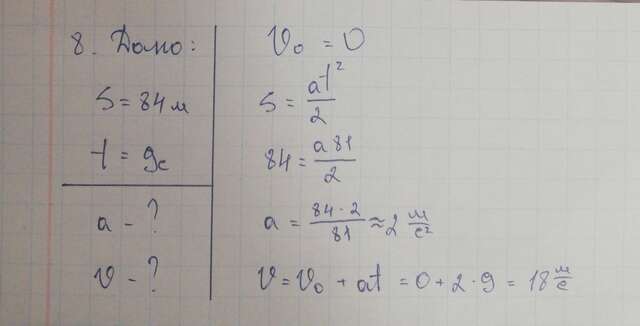 8. Дано:
S = 84 м
t = 9с
a - ?
v - ?
V₀ = 0
S = at²/2
84 = a 81/2
a = 84 · 2/81 ≈ 2 м/с²
V = V₀ + at = 0 + 2 · 9 = 18 м/с